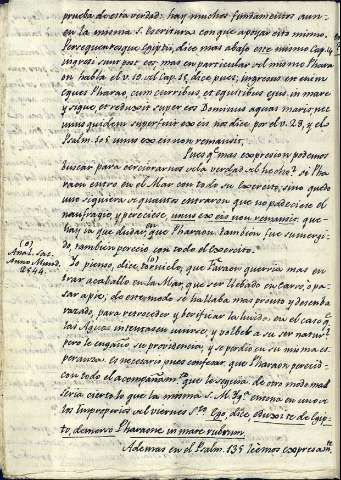 prueba de esta verdad: hay muchos fundamentos aun-
en la misma S. escritura con que apoyar esto mismo.
Persequentesque Egiptii, dice mas abajo este mismo Cap. 14
ingresi sunt post eos mas en particular del mismo Phara
on habla el v. 10. del Cap. 15, dice pues: ingresus en enim
eques Pharao, cum curribus, et equitibus ejus in mare
y sigue, et reduxit super eos Dominus aquas maris, nec
unus quidem superfuit ex eis no dice por el v. 28, y el
Psalm. 105 unus ex eis non remansit.
Pues q.e mas expresion podemos
buscar para cerciorarnos de la verdad del hecho? Si Pha
raon entro en el Mar con todo su exercito, sino quedo
uno siquiera de quantos entraron que no padeciese el
naufragio, y pereciese, unus ex eis non remansit, que-
hay ya que dudar, que Pharaon tambien fue sumergi
do, tambien perecio con todo el exercito.
(o)
Anal. Sac.
Anno Mund.
2544.
Yo pienso, dice (o) que Faraon querria mas en
trar acaballo en la Mar, que ser llebado en Carro, o pa
sar apie, de este modo se hallaba mas pronto y desemba
razado, para retroceder y berificar la huida, en el caso q.e
las Aguas intentasen unirse, y volbeb a su ser natur.l
pero le engaño su providencia, y se perdio en su misma es
peranza. Es necesario pues confesar, que Pharaon perecio-
con todo el acompañam.to que lo seguia. de otro modo mal
seria cierto lo que la misma S. M. Ygl.a entona en uno de
los Improperios del viernes S.to Ego, dice, Eduxi te de Egip
to, demerso Pharaone in mare rubrum.
Ademas en el Psalm. 135 leemos expresam.te